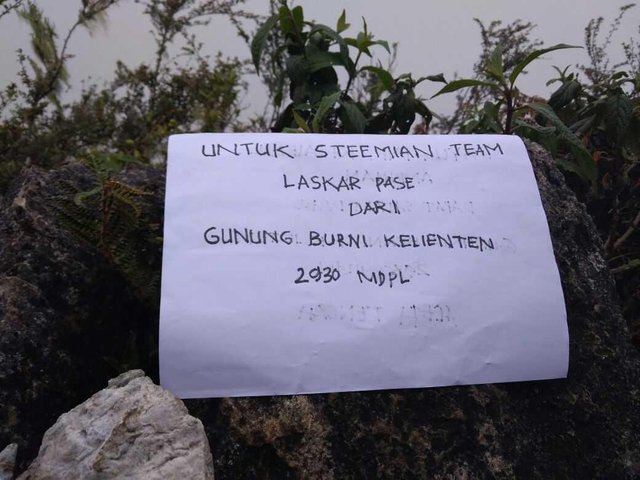 UNTUK STEEMIAN TEAM
LASKAR PASE
DARI
GUNUNG BURNI KELIENTEN
2930 MDPL